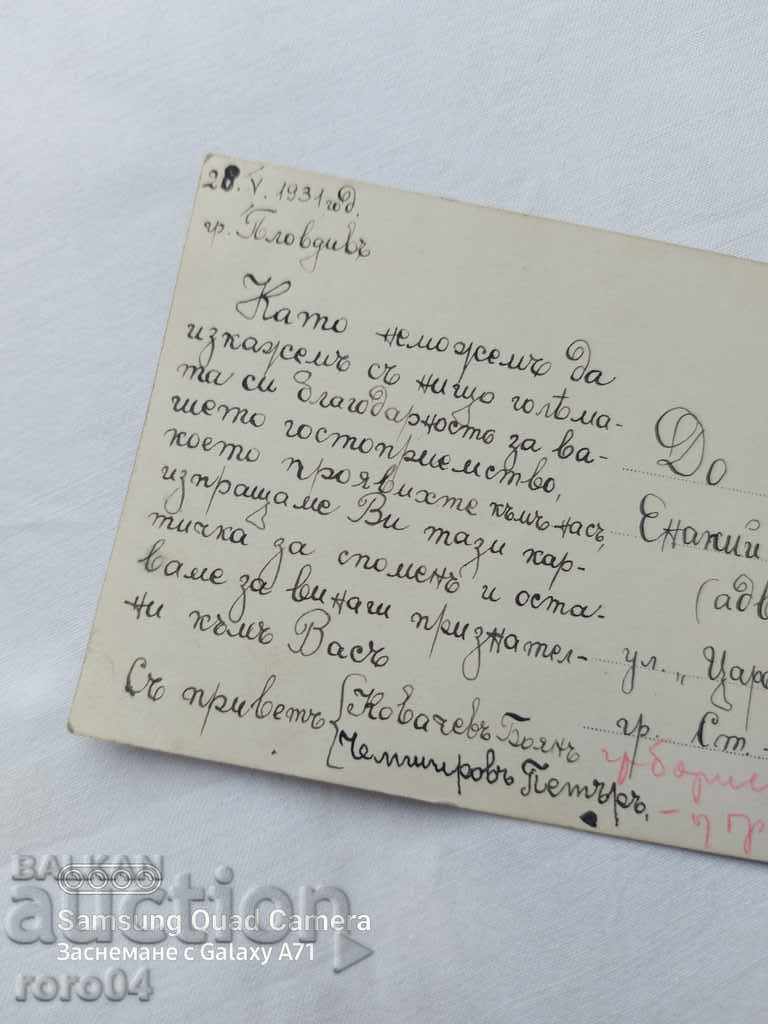 28. V. 1931 год.
гр. Пловдивъ
Като неможемъ да
изкажемъ съ нищо голѣма-
та си благодарность за ва-
шето гостоприемство,
което проявихте къмъ насъ,
изпращаме Ви тази кар-
тичка за споменъ и оста-
ваме за винаги признател-
ни къмъ Васъ
Съ приветъ
Ковачевъ Боянъ
Петъръ.
До
Енакий
(адв
ул. „Царе
гр. Ст.
BALKAN
auction
Samsung Quad Camera
Заснемане с Galaxy A71
roro04